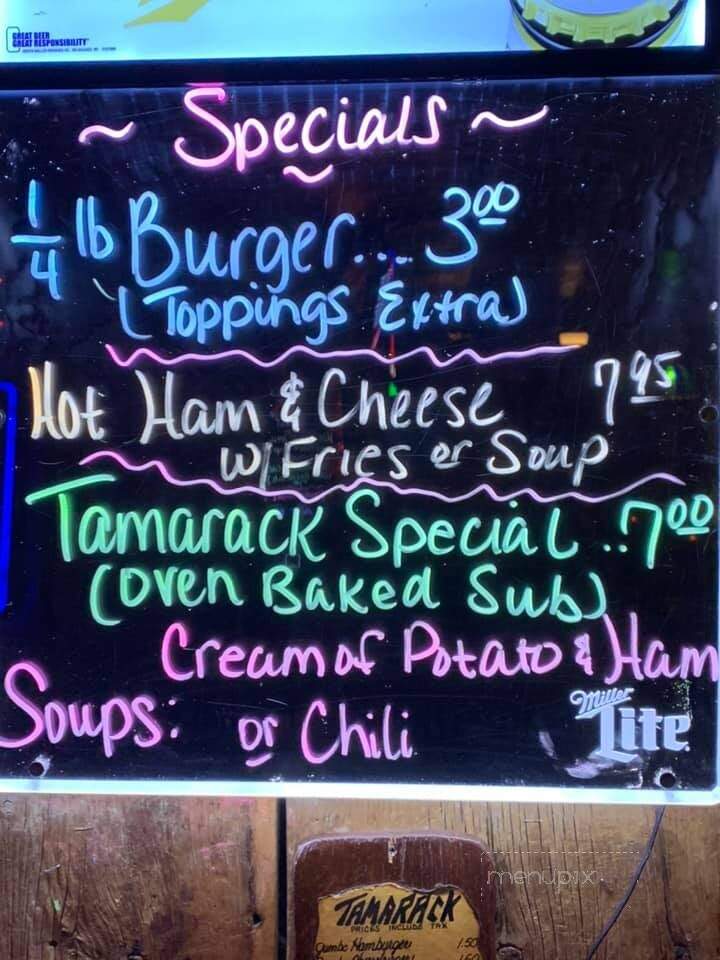 GREAT BEER
GREAT RESPONSIBILITY
~ Specials ~
1/4 lb Burger... 3.00
(Toppings Extra)
Hot Ham & Cheese 7.95
w/ Fries or Soup
Tamarack Special..7.00
(Oven Baked Sub)
Cream of Potato & Ham
Soups: or Chili
Miller
Lite
menupix
TAMARACK
PRICES INCLUDE TAX
Jumbo Hamburger 1.50